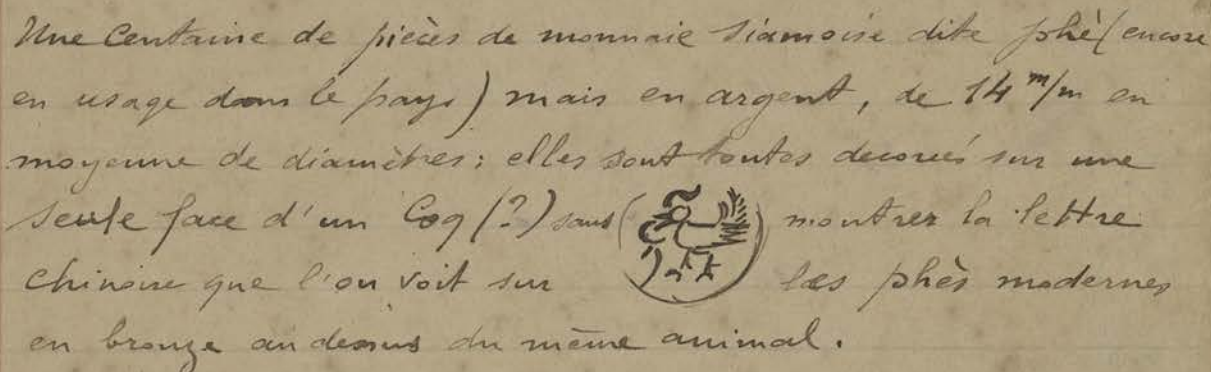 Une Centaine de pièces de monnaie siamoise dite phè (encore
en usage dans le pays) mais en argent, de 14 m/m en
moyenne de diamètres; elles sont toutes decorées sur une
seule face d'un Coq (?) sans montrer la lettre
chinoise que l'on voit sur les phès modernes
en bronze au dessus du même animal.